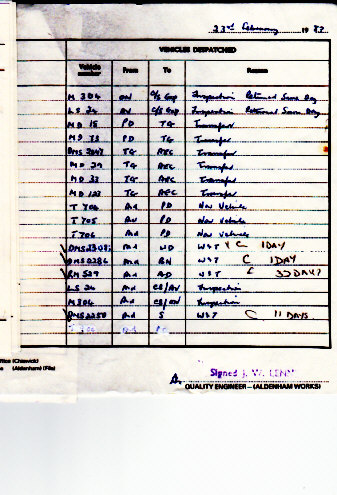 23rd February 1983
VEHICLES DESPATCHED
Vehicle number From To Reason
M 304 AV C/S Gap Inspection Returned Same Day
LS 24 AV C/S Gap Inspection Returned Same Day
MD 15 PD TG Transfer
MD 73 PD TG Transfer
DMS 2047 TG AEC Transfer
MD 29 TG AEC Transfer
MD 33 TG AEC Transfer
MD 123 TG AEC Transfer
T 700 AV PD New Vehicle
T 705 AV PD New Vehicle
T 706 AV PD New Vehicle
WD WST C 1 DAY
DMS 2286 RN WST C 1 DAY
RM 529 AD WST C DAYS
LS 24 AV CS/AV Inspection
M 304 AV CS/AV Inspection
DMS 2250 AV S WST C 11 DAYS
ffice (Chiswick)
(Aldenham) (File)
Signed J. W. LENN
QUALITY ENGINEER – (ALDENHAM WORKS)